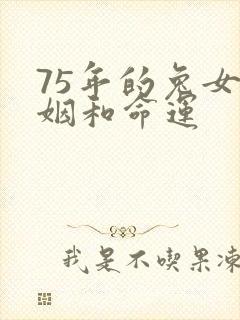 75年的兔女
姻和命运
我是不吃果冻